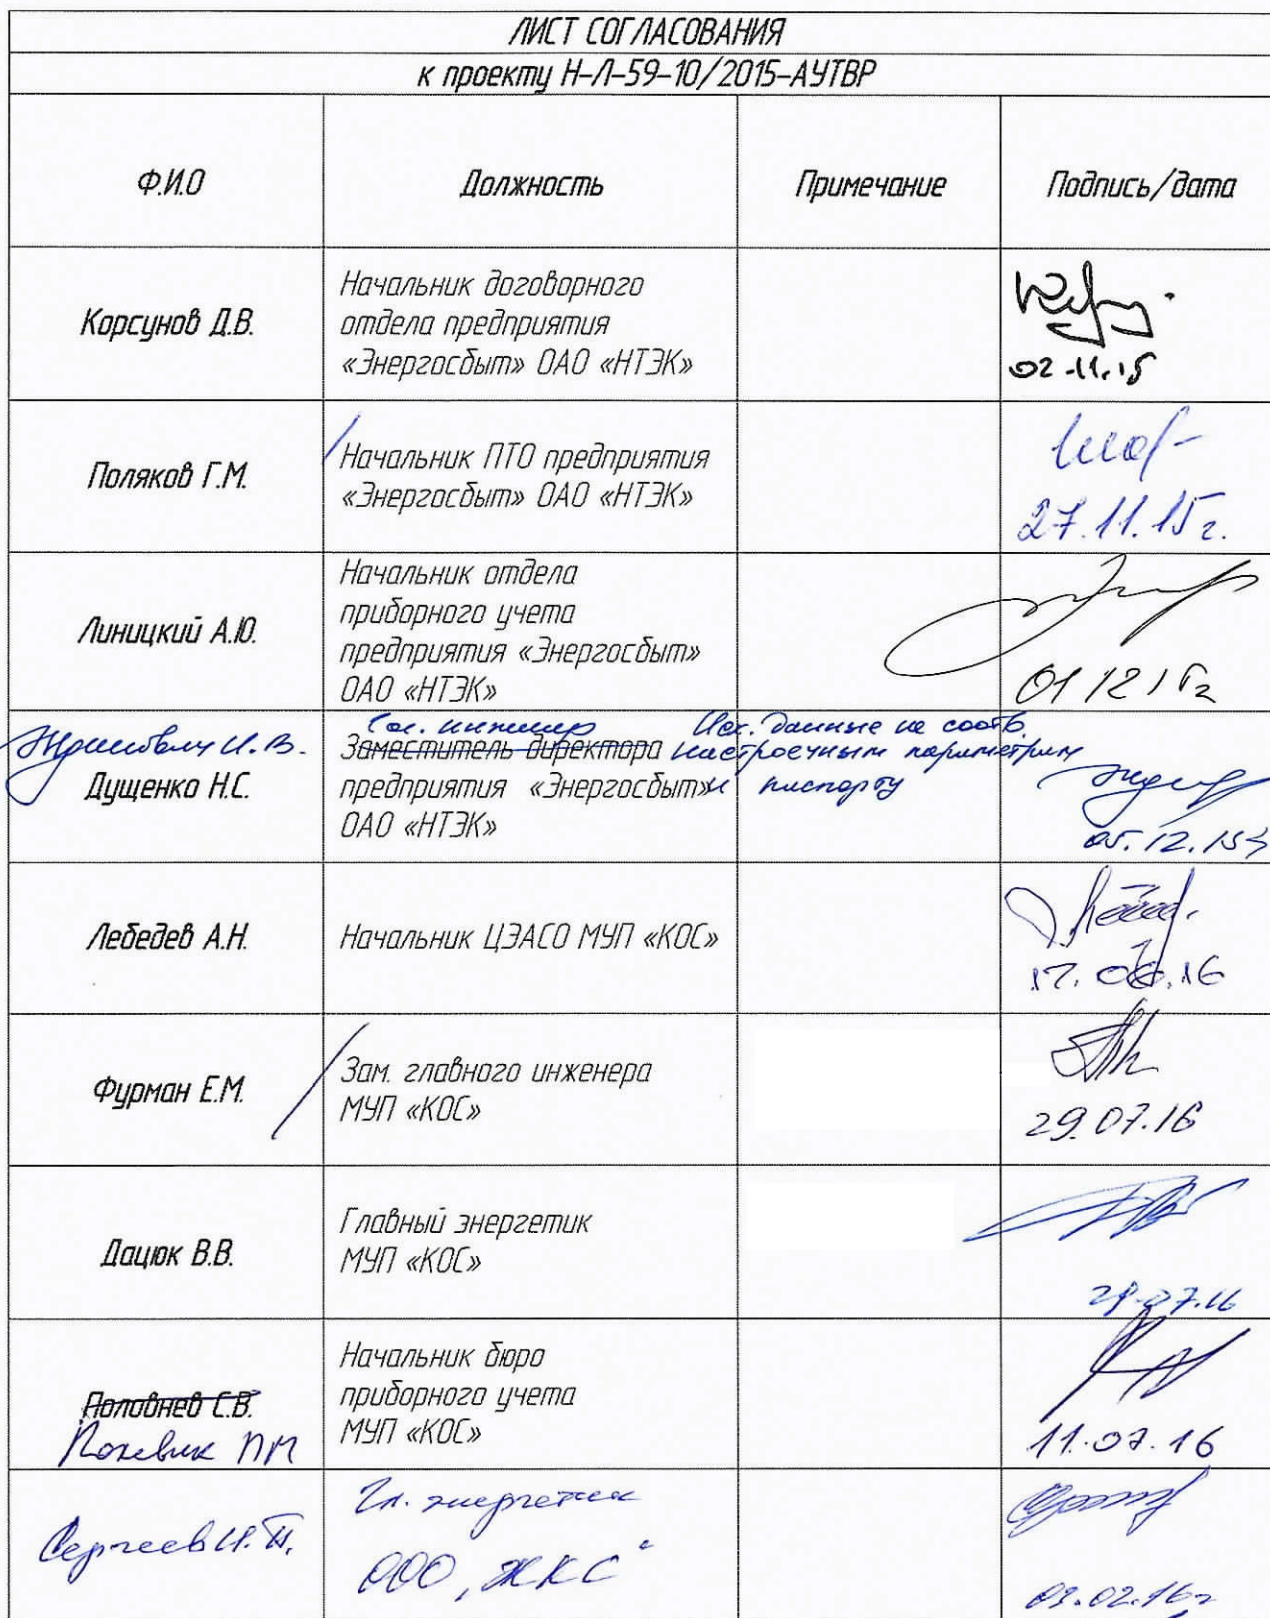 ЛИСТ СОГЛАСОВАНИЯ
к проекту Н-Л-59-10/2015-АУТВР
Ф.И.О
Должность
Примечание
Подпись/дата
Корсунов Д.В.
Начальник договорного
отдела предприятия
«Энергосбыт» ОАО «НТЭК»
02.11.15
Поляков Г.М.
Начальник ПТО предприятия
«Энергосбыт» ОАО «НТЭК»
27.11.15г.
Линицкий А.Ю.
Начальник отдела
приборного учета
предприятия «Энергосбыт»
ОАО «НТЭК»
01 12 15г
И.В.
Дущенко Н.С.
Гл. инженер
Заместитель директора
предприятия «Энергосбыт»
ОАО «НТЭК»
Исх. данные не соотв.
настроечным параметрам
и паспорту
05.12.15г
Лебедев А.Н.
Начальник ЦЭАСО МУП «КОС»
17.06.16
Фурман Е.М.
Зам. главного инженера
МУП «КОС»
29.07.16
Дацюк В.В.
Главный энергетик
МУП «КОС»
29.07.16
Половнев С.В.
Начальник бюро
приборного учета
МУП «КОС»
11.07.16
Сергеев И.
Гл. энергетик
ООО "ЖКС"
02.16г